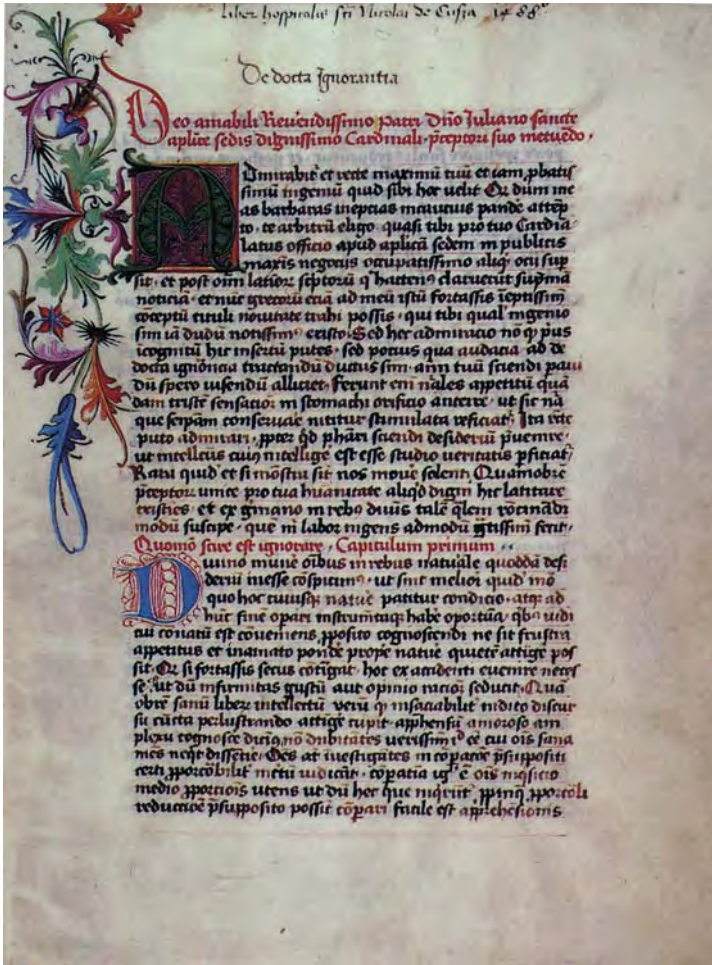 liber hospitalis sti Nicolai de Cusza 1488
De docta Ignorantia
Deo amabili Reverendissimo patri Dno Juliano sancte
aplice sedis dignissimo Cardinali pceptori suo metuedo
Admirabit et recte maximu tuu et iam pbatis
simu ingeniu quid sibi hoc velit Qr dum me
as barbaras ineptias incautius pande attep
to te arbitru eligo quasi tibi pro tuo Cardia
latus officio apud aplica sedem in publicis
maxis negociis occupatissimo aliq ocii sup
sit et post oim latior septoru q hactens claruerut supma
noticia et nuc grecoru ecia ad meu istu fortassis ieptissim
coceptu tituli novitate trahi possis qui tibi qual ingenio
sim ia dudu notissims existo Sed hec admiracio no q pus
icognitu hic insertu putes sed pocius qua audacia ad de
docta ignorcia tractandu ductus sim aim tuu sciendi pavi
du spero visendu alliciet Ferunt em nales appetitu qua
dam triste sensatior in stomachi orificio anteire ut sic na
que seipam conservare nititur stimulata reficiat Ita recte
puto admirari ppter qd phari sciendi desideriu pvenire
ut intellcus cuius intellige est esse studio veritatis pficiat
Rara quid et si mostra sit nos move solent Quamobre
pceptor unice pro tua huanitate aliqd digni hic latitare
existies et ex gmano in rebs divis tale qlem rocinadi
modu suscipe que m labor ingens admodu gtissim fecit
Quomo scire est ignorare Capitulum primum
Divino mune oibus in rebus naturale quodda desi
deriu inesse cospicims ut sint meliori quid mo
quo hoc cuiusq nature patitur condicio atqs ad
hunc fine opari instrumtaq habe oportuna qbs iudi
ciu conatu est coveniens pposito cognoscendi ne sit frustra
appetitus et in amato ponde prope nature quiete attige pos
sit Qr si fortassis secus cotigat hoc ex accidenti evenire neces
se ut du infirmitas gustu aut opinio racior seducit Qua
obre sanu libere intellectu veru q insaciabilit indito discur
su cucta perlustrando attige cupit apphensu amoroso am
plexu cognosce dicims no dubitates verissim id ee cui ois sana
mes neqt dissetire Oes at ivestigates in copacoe psuppositi
certi pporcobilit incertu iudicat copatia igr e ois inqsicio
medio pporciois utens ut du hec que inqrunt ppinq pporcoli
reductioe psupposito possit copari facile est apprehesionis